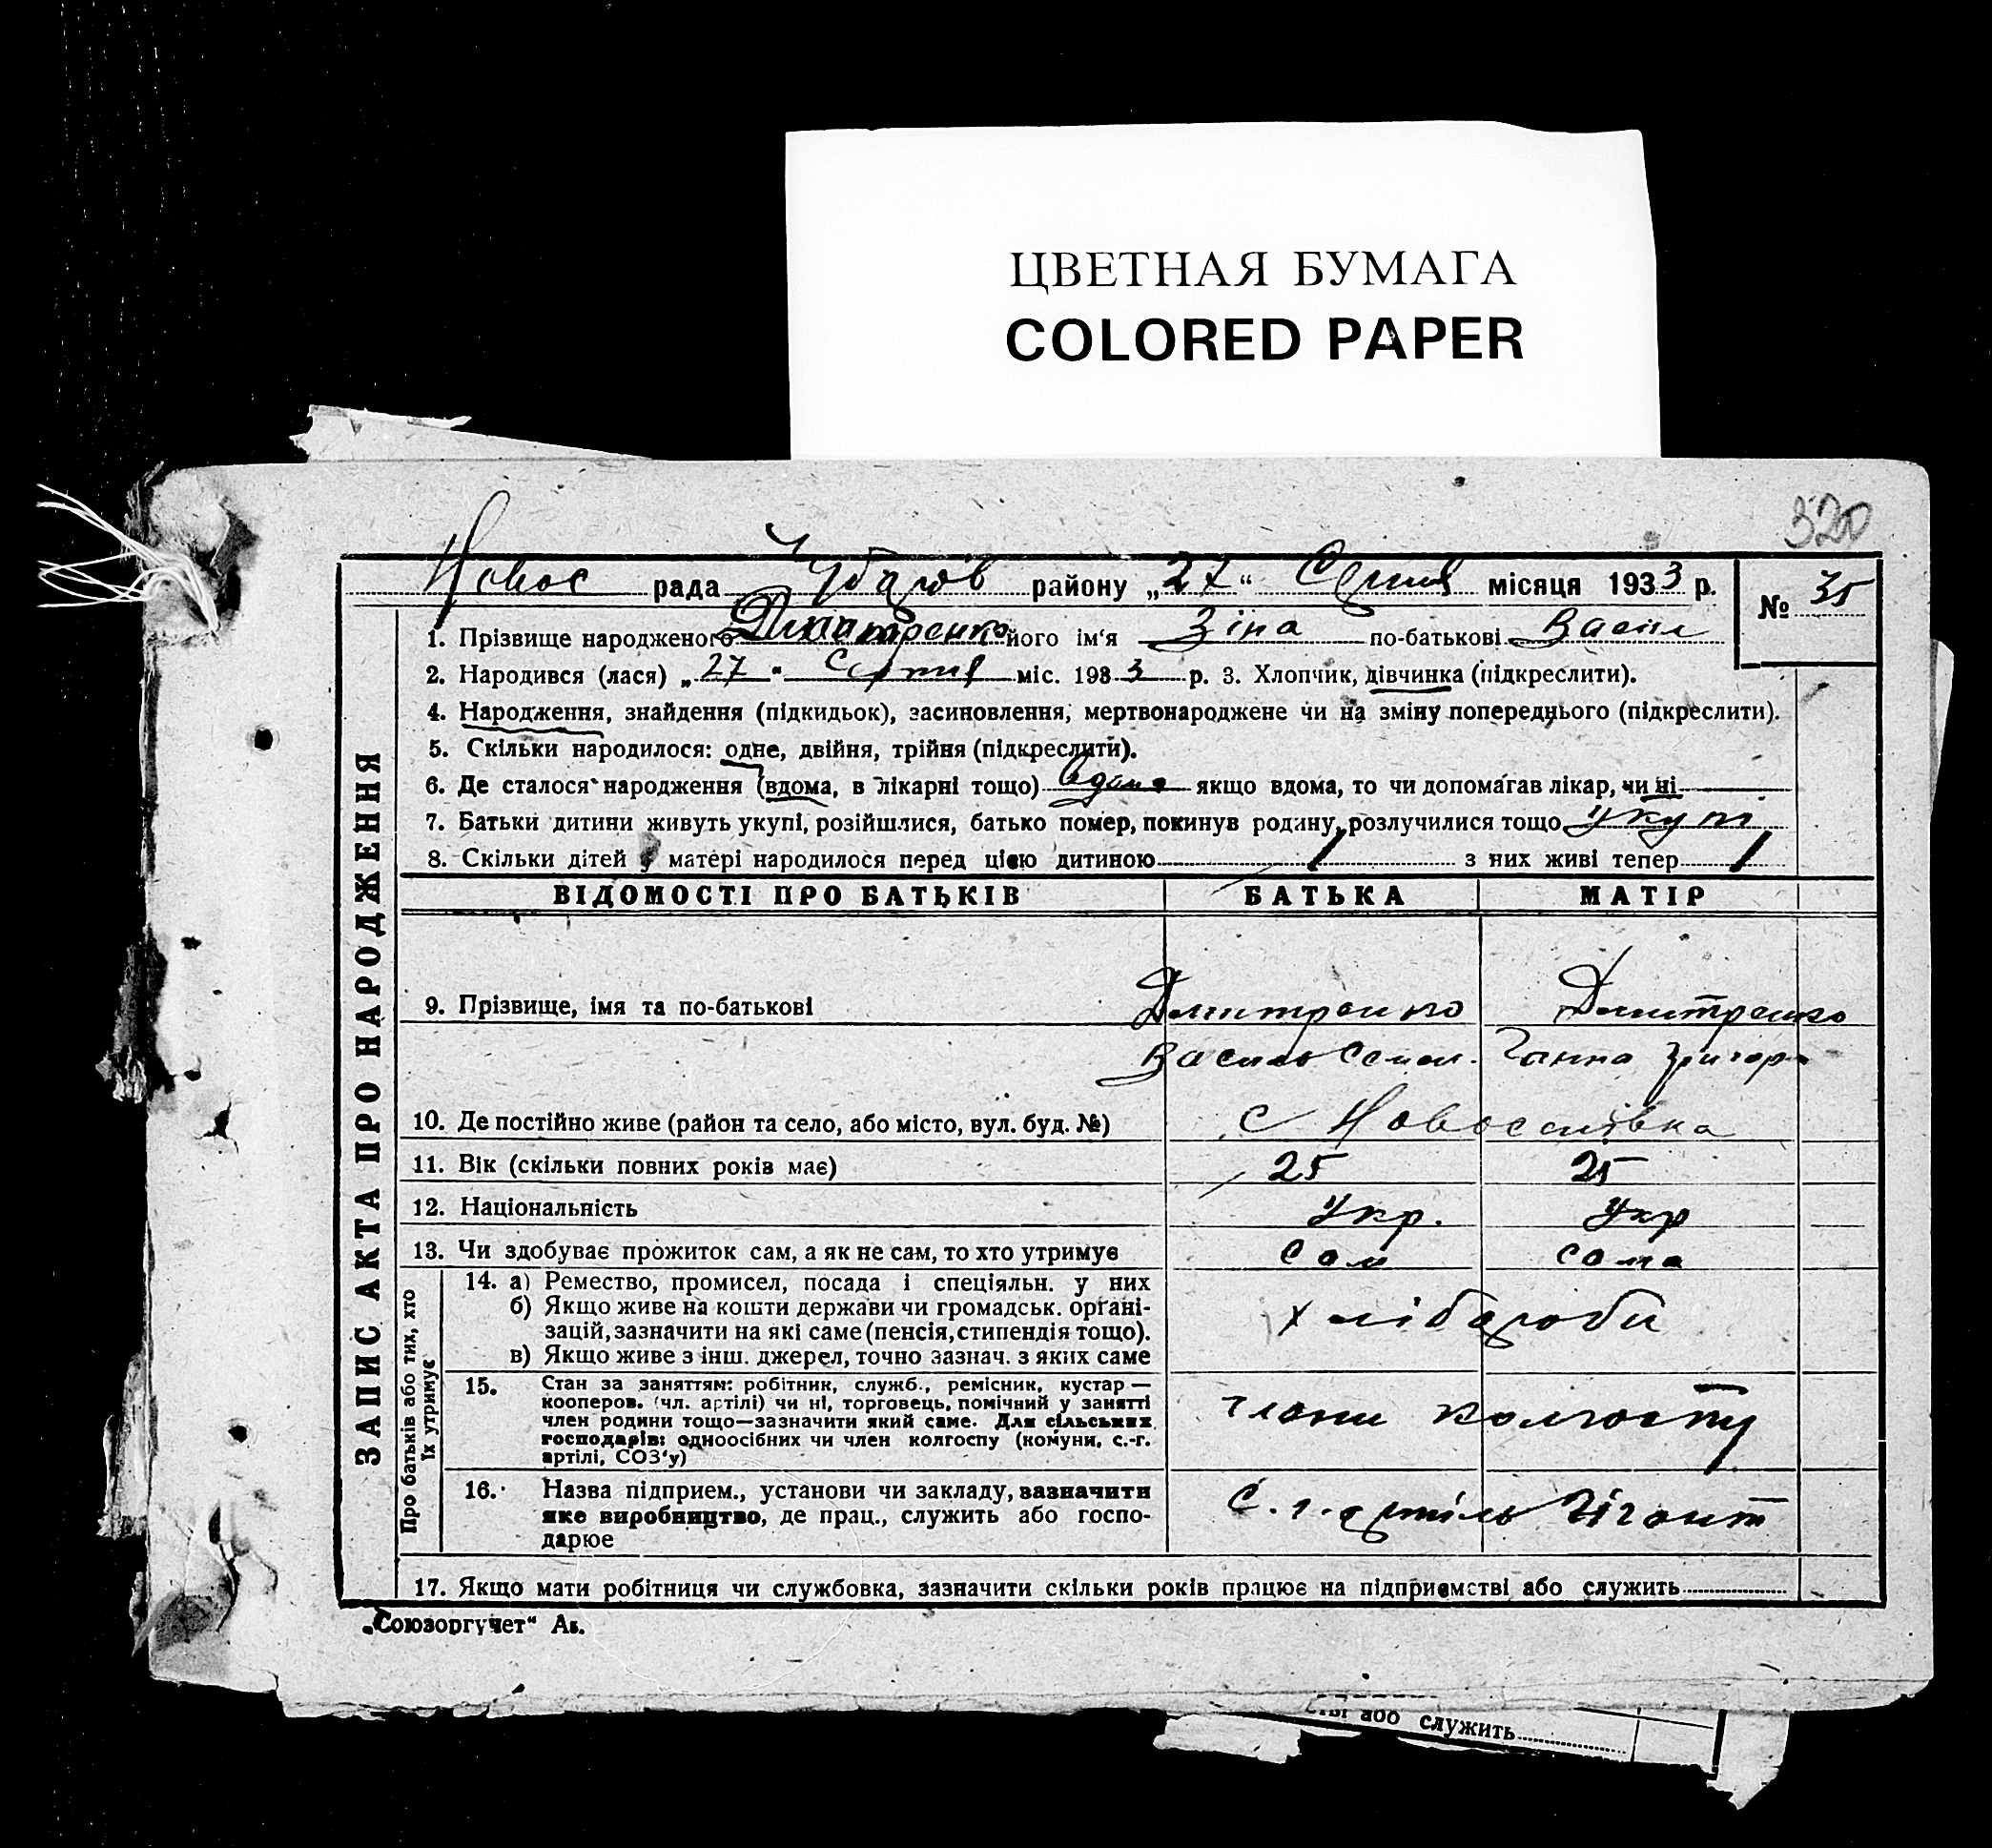 ЦВЕТНАЯ БУМАГА
COLORED PAPER
320
Новос рада Чубарів району „27“ Серпня місяця 1933 р. № 35
ЗАПИС АКТА ПРО НАРОДЖЕННЯ
1. Прізвище народженого Дмитренко його ім‘я Зіна по-батькові Васил
2. Народився (лася) „27“ Серпня міс. 1933 р. 3. Хлопчик, дівчинка (підкреслити).
4. Народження, знайдення (підкидьок), засиновлення, мертвонароджене чи на зміну попереднього (підкреслити).
5. Скільки народилося: одне, двійня, трійня (підкреслити).
6. Де сталося народження (вдома, в лікарні тощо) вдома якщо вдома, то чи допомагав лікар, чи ні
7. Батьки дитини живуть укупі, розійшлися, батько помер, покинув родину, розлучилися тощо укупі
8. Скільки дітей у матері народилося перед цією дитиною 1 з них живі тепер 1
ВІДОМОСТІ ПРО БАТЬКІВ БАТЬКА МАТІР
9. Прізвище, імя та по-батькові Дмитренко Дмитренко
Василь Семен. Ганна Григор
10. Де постійно живе (район та село, або місто, вул. буд. №) с Новоселівка
11. Вік (скільки повних років має) 25 25
12. Національність Укр. Укр
13. Чи здобуває прожиток сам, а як не сам, то хто утримує Сам Сама
Про батьків або тих, хто їх утримує
14. а) Ремество, промисел, посада і спеціяльн. у них
б) Якщо живе на кошти держави чи громадськ. органі-
зацій, зазначити на які саме (пенсія, стипендія тощо).
в) Якщо живе з інш. джерел, точно зазнач. з яких саме
хлібароби
15. Стан за заняттям: робітник, служб., ремісник, кустар —
кооперов. (чл. артілі) чи ні, торговець, помічний у занятті
член родини тощо—зазначити який саме. Для сільських
господарів: одноосібних чи член колгоспу (комуни, с.-г.
артілі, СОЗ‘у)
члени колгоспу
16. Назва підприєм., установи чи закладу, зазначити
яке виробництво, де прац., служить або госпо-
дарює
С. г. артіль Гігант
17. Якщо мати робітниця чи службовка, зазначити скільки років працює на підприємстві або служить
„Союзоргучет“
або служить